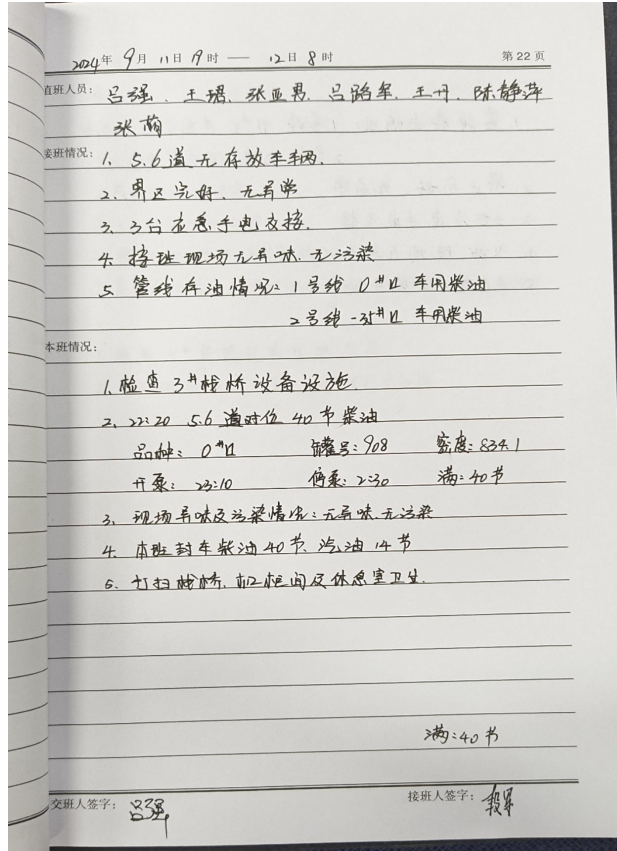 2024年 9月 11日 19时 —— 12日 8时 第 22 页
值班人员: 吕强、王珺、张亚男、吕路军、王丹、陈静萍
张萌
接班情况: 1. 5.6道无存放车辆.
2. 界区完好、无异常
3. 3台应急手电交接.
4. 接班现场无异味.无污染
5. 管线存油情况: 1号线 0#Ⅵ 车用柴油
2号线 -35#Ⅵ 车用柴油
本班情况:
1. 检查3#栈桥设备设施
2. 22:20 5.6道对位 40节柴油
品种: 0#Ⅵ 罐号: 908 密度: 834.1
开泵: 23:10 停泵: 2:30 满: 40节
3. 现场异味及污染情况: 无异味.无污染
4. 本班封车柴油40节、汽油14节
5. 打扫栈桥.机柜间及休息室卫生.
满: 40节
交班人签字: 吕强 接班人签字: